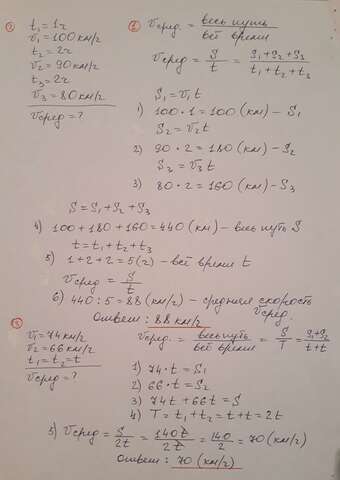 ② t₁ = 1ч
v₁ = 100 км/ч
t₂ = 2ч
v₂ = 90 км/ч
t₃ = 2ч
v₃ = 80 км/ч
vсред = ?
② vсред. = весь путь / всё время
vсред = S/t = (S₁+S₂+S₃)/(t₁+t₂+t₃)
S₁ = v₁t
1) 100·1 = 100 (км) – S₁
S₂ = v₂t
2) 90·2 = 180 (км) – S₂
S₂ = v₃t
3) 80·2 = 160 (км) – S₃
S = S₁ + S₂ + S₃
4) 100 + 180 + 160 = 440 (км) – весь путь S
t = t₁ + t₂ + t₃
5) 1 + 2 + 2 = 5 (ч) – всё время t
vсред = S/t
6) 440 : 5 = 88 (км/ч) – средняя скорость vсред.
Ответ: 88 км/ч
③ v₁ = 74 км/ч
v₂ = 66 км/ч
t₁ = t₂ = t
vсред = ?
vсред. = весь путь / всё время = S/T = (S₁+S₂)/(t+t)
1) 74·t = S₁
2) 66·t = S₂
3) 74t + 66t = S
4) T = t₁ + t₂ = t + t = 2t
5) vсред = S/2t = 140t/2t = 140/2 = 70 (км/ч)
Ответ: 70 (км/ч)